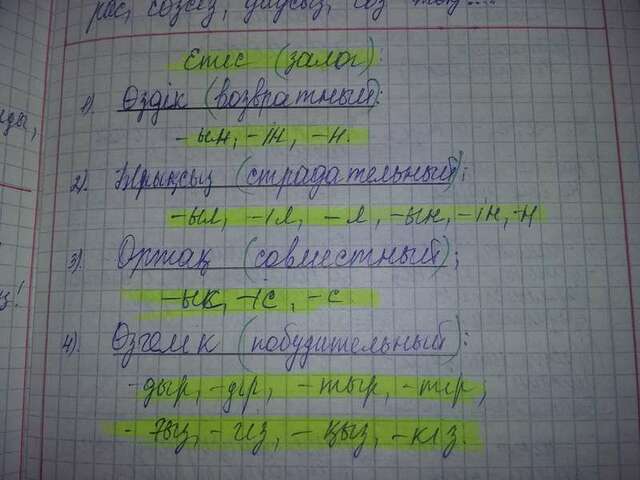 Етіс (залог):
1) Өздік (возвратный):
-ын, -ін, -н
2) Ырықсыз (страдательный):
-ыл, -іл, -л, -ын, -ін, -н
3) Ортақ (совместный);
-ыс, -іс, -с
4) Өзгелік (побудительный):
-дыр, -дір, -тыр, -тір,
-ғыз, -гіз, -қыз, -кіз.